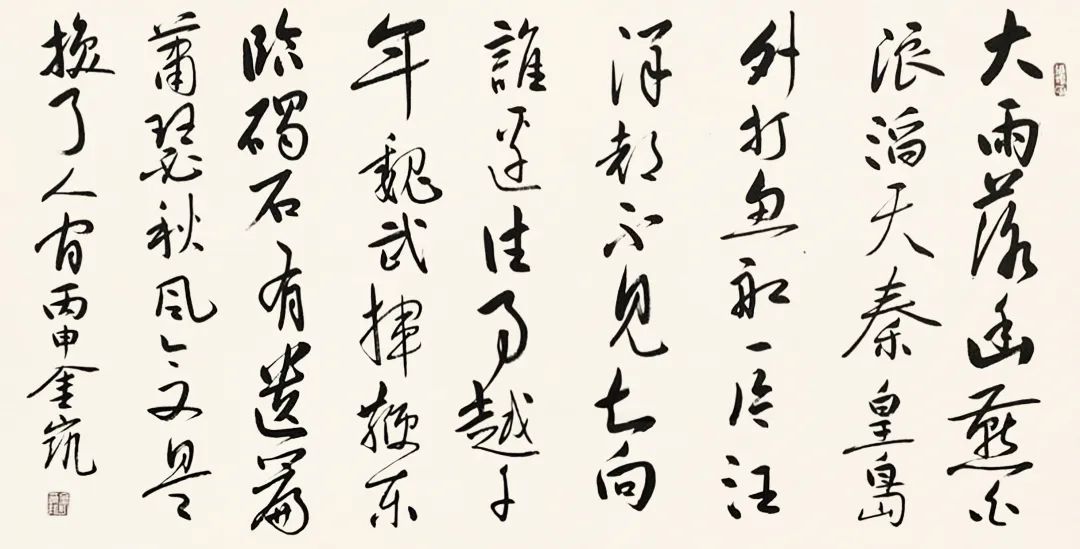 大雨落幽燕白
浪滔天秦皇島
外打魚船一片汪
洋都不見知向
誰邊往事越千
年魏武揮鞭東
臨碣石有遺篇
蕭瑟秋風今又是
換了人間丙申金